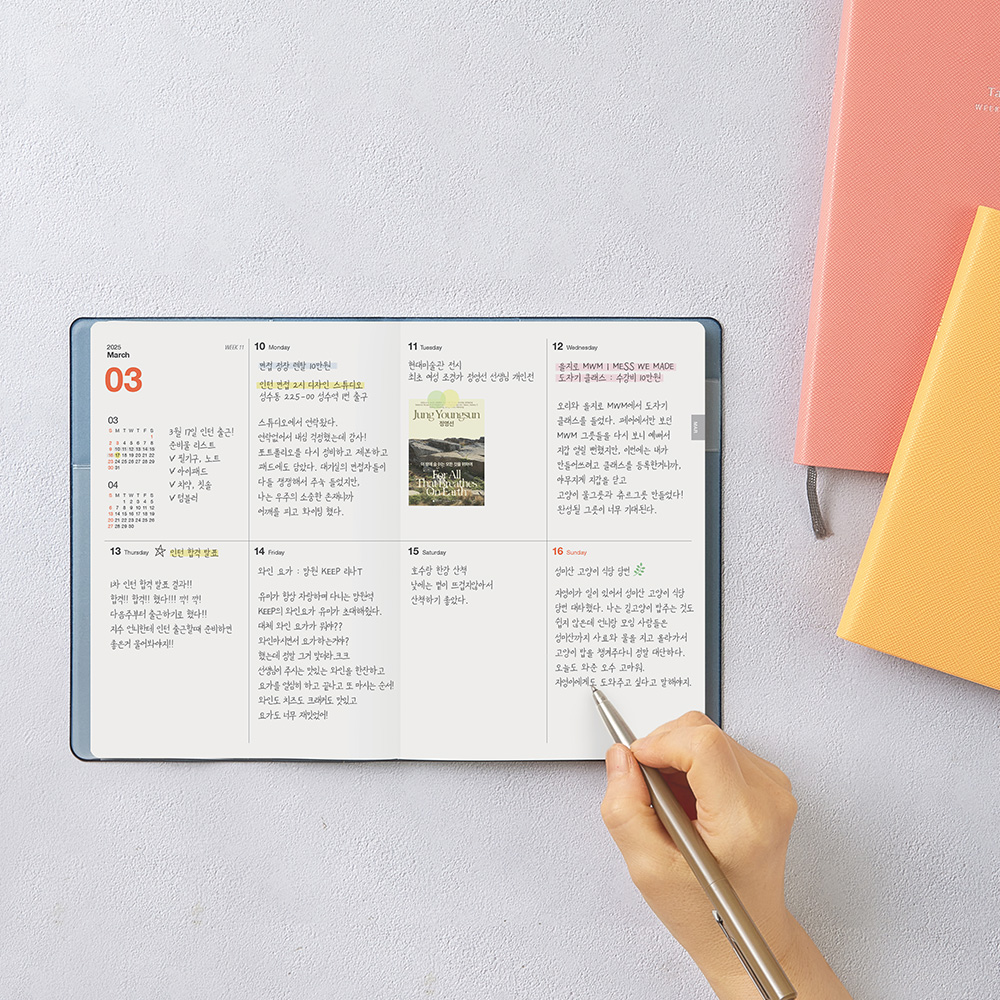 2025
March
WEEK 11
03
03
S M T W T F S
1
2 3 4 5 6 7 8
9 10 11 12 13 14 15
16 17 18 19 20 21 22
23 24 25 26 27 28 29
30 31
04
S M T W T F S
1 2 3 4 5
6 7 8 9 10 11 12
13 14 15 16 17 18 19
20 21 22 23 24 25 26
27 28 29 30
3월 17일 인턴 출근!
준비물 리스트
✓ 필기구, 노트
✓ 아이패드
✓ 치약, 칫솔
✓ 텀블러
10 Monday
면접 정장 렌탈 10만원
인턴 면접 2시 디자인 스튜디오
성수동 225-00 성수역 1번 출구
스튜디오에서 연락왔다.
연락없어서 내심 걱정했는데 감사!
포트폴리오를 다시 정비하고 제본하고
패드에도 담았다. 대기실의 면접자들이
다들 쟁쟁해서 주눅 들었지만,
나는 우주의 소중한 존재니까
어깨를 피고 화이팅 했다.
11 Tuesday
현대미술관 전시
최초 여성 조경가 정영선 선생님 개인전
Jung Youngsun
정영선
이 땅에 숨 쉬는 모든 것을 위하여
For All
That Breathes
On Earth
12 Wednesday
을지로 MWM I MESS WE MADE
도자기 클래스 : 수강비 10만원
오리와 을지로 MWM에서 도자기
클래스를 들었다. 페어에서만 보던
MWM 그릇들을 다시 보니 예뻐서
지갑 열릴 뻔했지만, 이번에는 내가
만들어쓰려고 클래스를 등록한거니까,
야무지게 지갑을 닫고
고양이 물그릇과 츄르그릇 만들었다!
완성될 그릇이 너무 기대된다.
MAR
13 Thursday ☆ 인턴 합격 발표
1차 인턴 합격 발표 결과!!
합격!! 합격!! 했다!!! 꺅! 꺅!
다음주부터 출근하기로 했다!!
지수 언니한테 인턴 출근할때 준비하면
좋은거 물어봐야지!!
14 Friday
와인 요가 : 망원 KEEP 리나T
유미가 항상 자랑하며 다니는 망원역
KEEP의 와인요가 유미가 초대해줬다.
대체 와인 요가가 뭐야??
와인마시면서 요가하는거야?
했는데 정말 그거 맞더라 크크
선생님이 주시는 맛있는 와인을 한잔하고
요가를 열심히 하고 끝나고 또 마시는 순서!
와인도 치즈도 크래커도 맛있고
요가도 너무 재밌었어!
15 Saturday
호수랑 한강 산책
낮에는 볕이 뜨겁지않아서
산책하기 좋았다.
16 Sunday
성미산 고양이 식당 당번
지영이가 일이 있어서 성미산 고양이 식당
당번 대타했다. 나는 길고양이 밥주는 것도
쉽지 않은데 언니랑 모임 사람들은
성미산까지 사료와 물을 지고 올라가서
고양이 밥을 챙겨주다니 정말 대단하다.
오늘도 와준 오수 고마워.
지영이에게도 도와주고 싶다고 말해야지.
Ta
WEEK